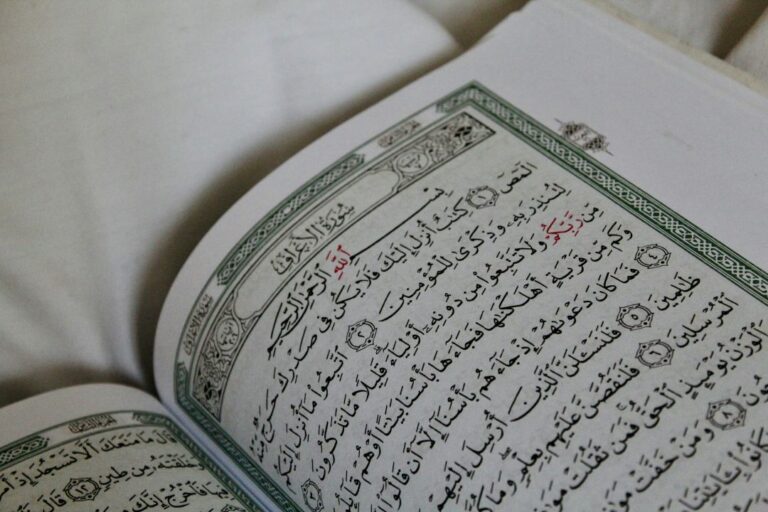 سُورَةُ الأَعْرَافِ
بِسْمِ اللَّهِ الرَّحْمَٰنِ الرَّحِيمِ
الٓمٓصٓ ١ كِتَٰبٌ أُنزِلَ إِلَيْكَ فَلَا يَكُن فِي صَدْرِكَ حَرَجٌ مِّنْهُ
لِتُنذِرَ بِهِۦ وَذِكْرَىٰ لِلْمُؤْمِنِينَ ٢ اتَّبِعُوا مَا أُنزِلَ إِلَيْكُم
مِّن رَّبِّكُمْ وَلَا تَتَّبِعُوا مِن دُونِهِۦ أَوْلِيَاءَ قَلِيلًا مَّا تَذَكَّرُونَ ٣
وَكَم مِّن قَرْيَةٍ أَهْلَكْنَٰهَا فَجَاءَهَا بَأْسُنَا بَيَٰتًا أَوْ هُمْ قَائِلُونَ
٤ فَمَا كَانَ دَعْوَىٰهُمْ إِذْ جَاءَهُم بَأْسُنَا إِلَّا أَن قَالُوا
ظَٰلِمِينَ ٥ فَلَنَسْـَٔلَنَّ الَّذِينَ أُرْسِلَ إِلَيْهِمْ
الْمُرْسَلِينَ ٦ فَلَنَقُصَّنَّ عَلَيْهِم بِعِلْمٍ وَمَا كُنَّا
وَالْوَزْنُ يَوْمَئِذٍ الْحَقُّ فَمَن ثَقُلَتْ
٨ وَمَنْ خَفَّتْ
كَانُوا بِـَٔايَٰتِنَا
قَالَ مَا مَنَعَكَ أَلَّا تَسْجُدَ إِذْ
خَلَقْتَهُۥ مِن طِينٍ ١٢ قَالَ
فَاخْرُجْ إِنَّكَ